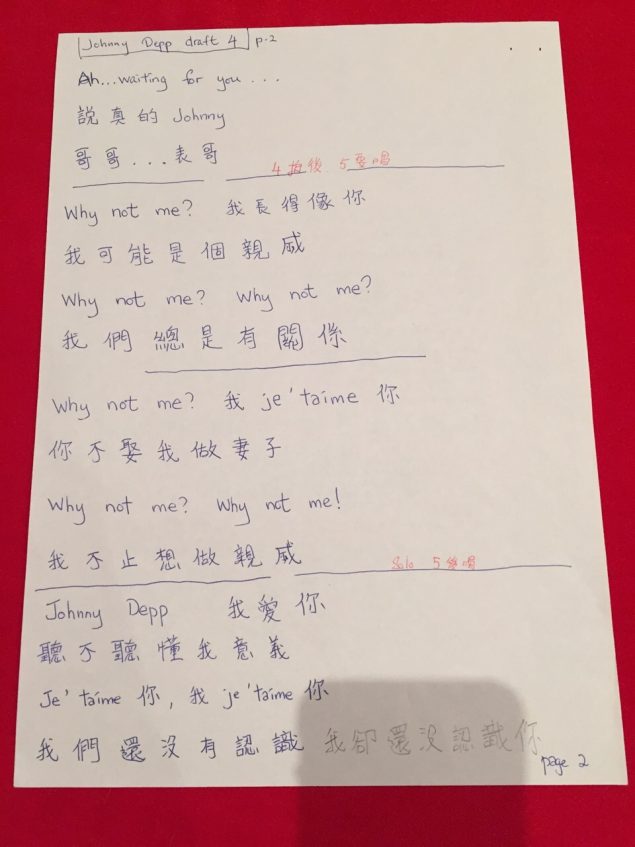 Johnny Depp draft 4 p.2
Ah...waiting for you...
說真的 Johnny
哥哥...表哥 4拍後 5要唱
Why not me? 我長得像你
我可能是個親戚
Why not me? Why not me?
我們總是有關係
Why not me? 我 je'taime 你
你不娶我做妻子
Why not me? Why not me!
我不止想做親戚 Solo 5
Johnny Depp 我愛你
聽不聽懂我意義
Je'taime 你, 我 je'taime 你
我們還沒有認識 我卻還沒認識你
page 2